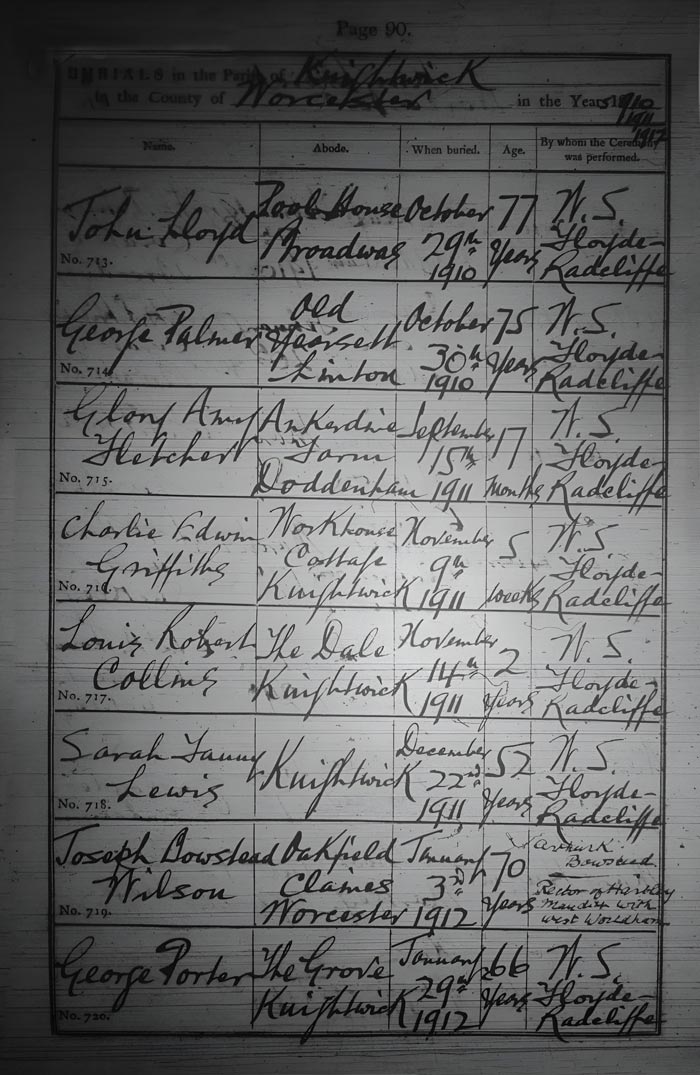 Page 90.
BURIALS in the Parish of Knightwick
in the County of Worcester in the Years 1910
1911
1912
Name. Abode. When buried. Age. By whom the Ceremony was performed.
John Lloyd
No. 713.
House
Broadwas
October
29th
1910
77
Years
W. S.
Floyde-
Radcliffe
George Palmer
No. 714.
Old
Yearsett
Linton
October
30th
1910
75
Years
W. S.
Floyde-
Radcliffe
Glory Amy
Fletcher
No. 715.
Ankerdine
Farm
Doddenham
September
15th
1911
17
Months
W. S.
Floyde-
Radcliffe
Charlie Edwin
Griffiths
No. 716.
Workhouse
Cottage
Knightwick
November
9th
1911
5
weeks
W. S.
Floyde-
Radcliffe
Louis Robert
Collins
No. 717.
The Dale
Knightwick
November
14th
1911
2
Years
W. S.
Floyde-
Radcliffe
Sarah Fanny
Lewis
No. 718.
Knightwick
December
22nd
1911
52
Years
W. S.
Floyde-
Radcliffe
Joseph Bowstead
Wilson
No. 719.
Oakfield
Claines
Worcester
January
3rd
1912
70
Years
Bowstead
Rector of Hartley
Maudit with
West Worldham
George Porter
No. 720.
The Grove
Knightwick
January
29th
1912
66
Years
W. S.
Floyde-
Radcliffe